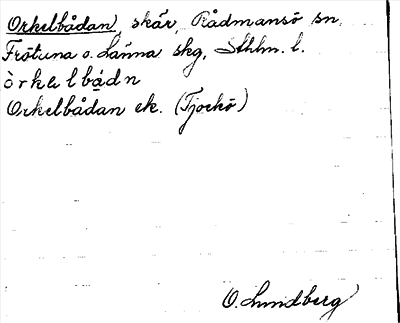 Orkelbådan, skär, Rådmansö sn,
Frötuna o. Länna skg, Sthlm. l.
òrkəlbådn
Orkelbådan ek. (Tjockö)
O. Lundberg